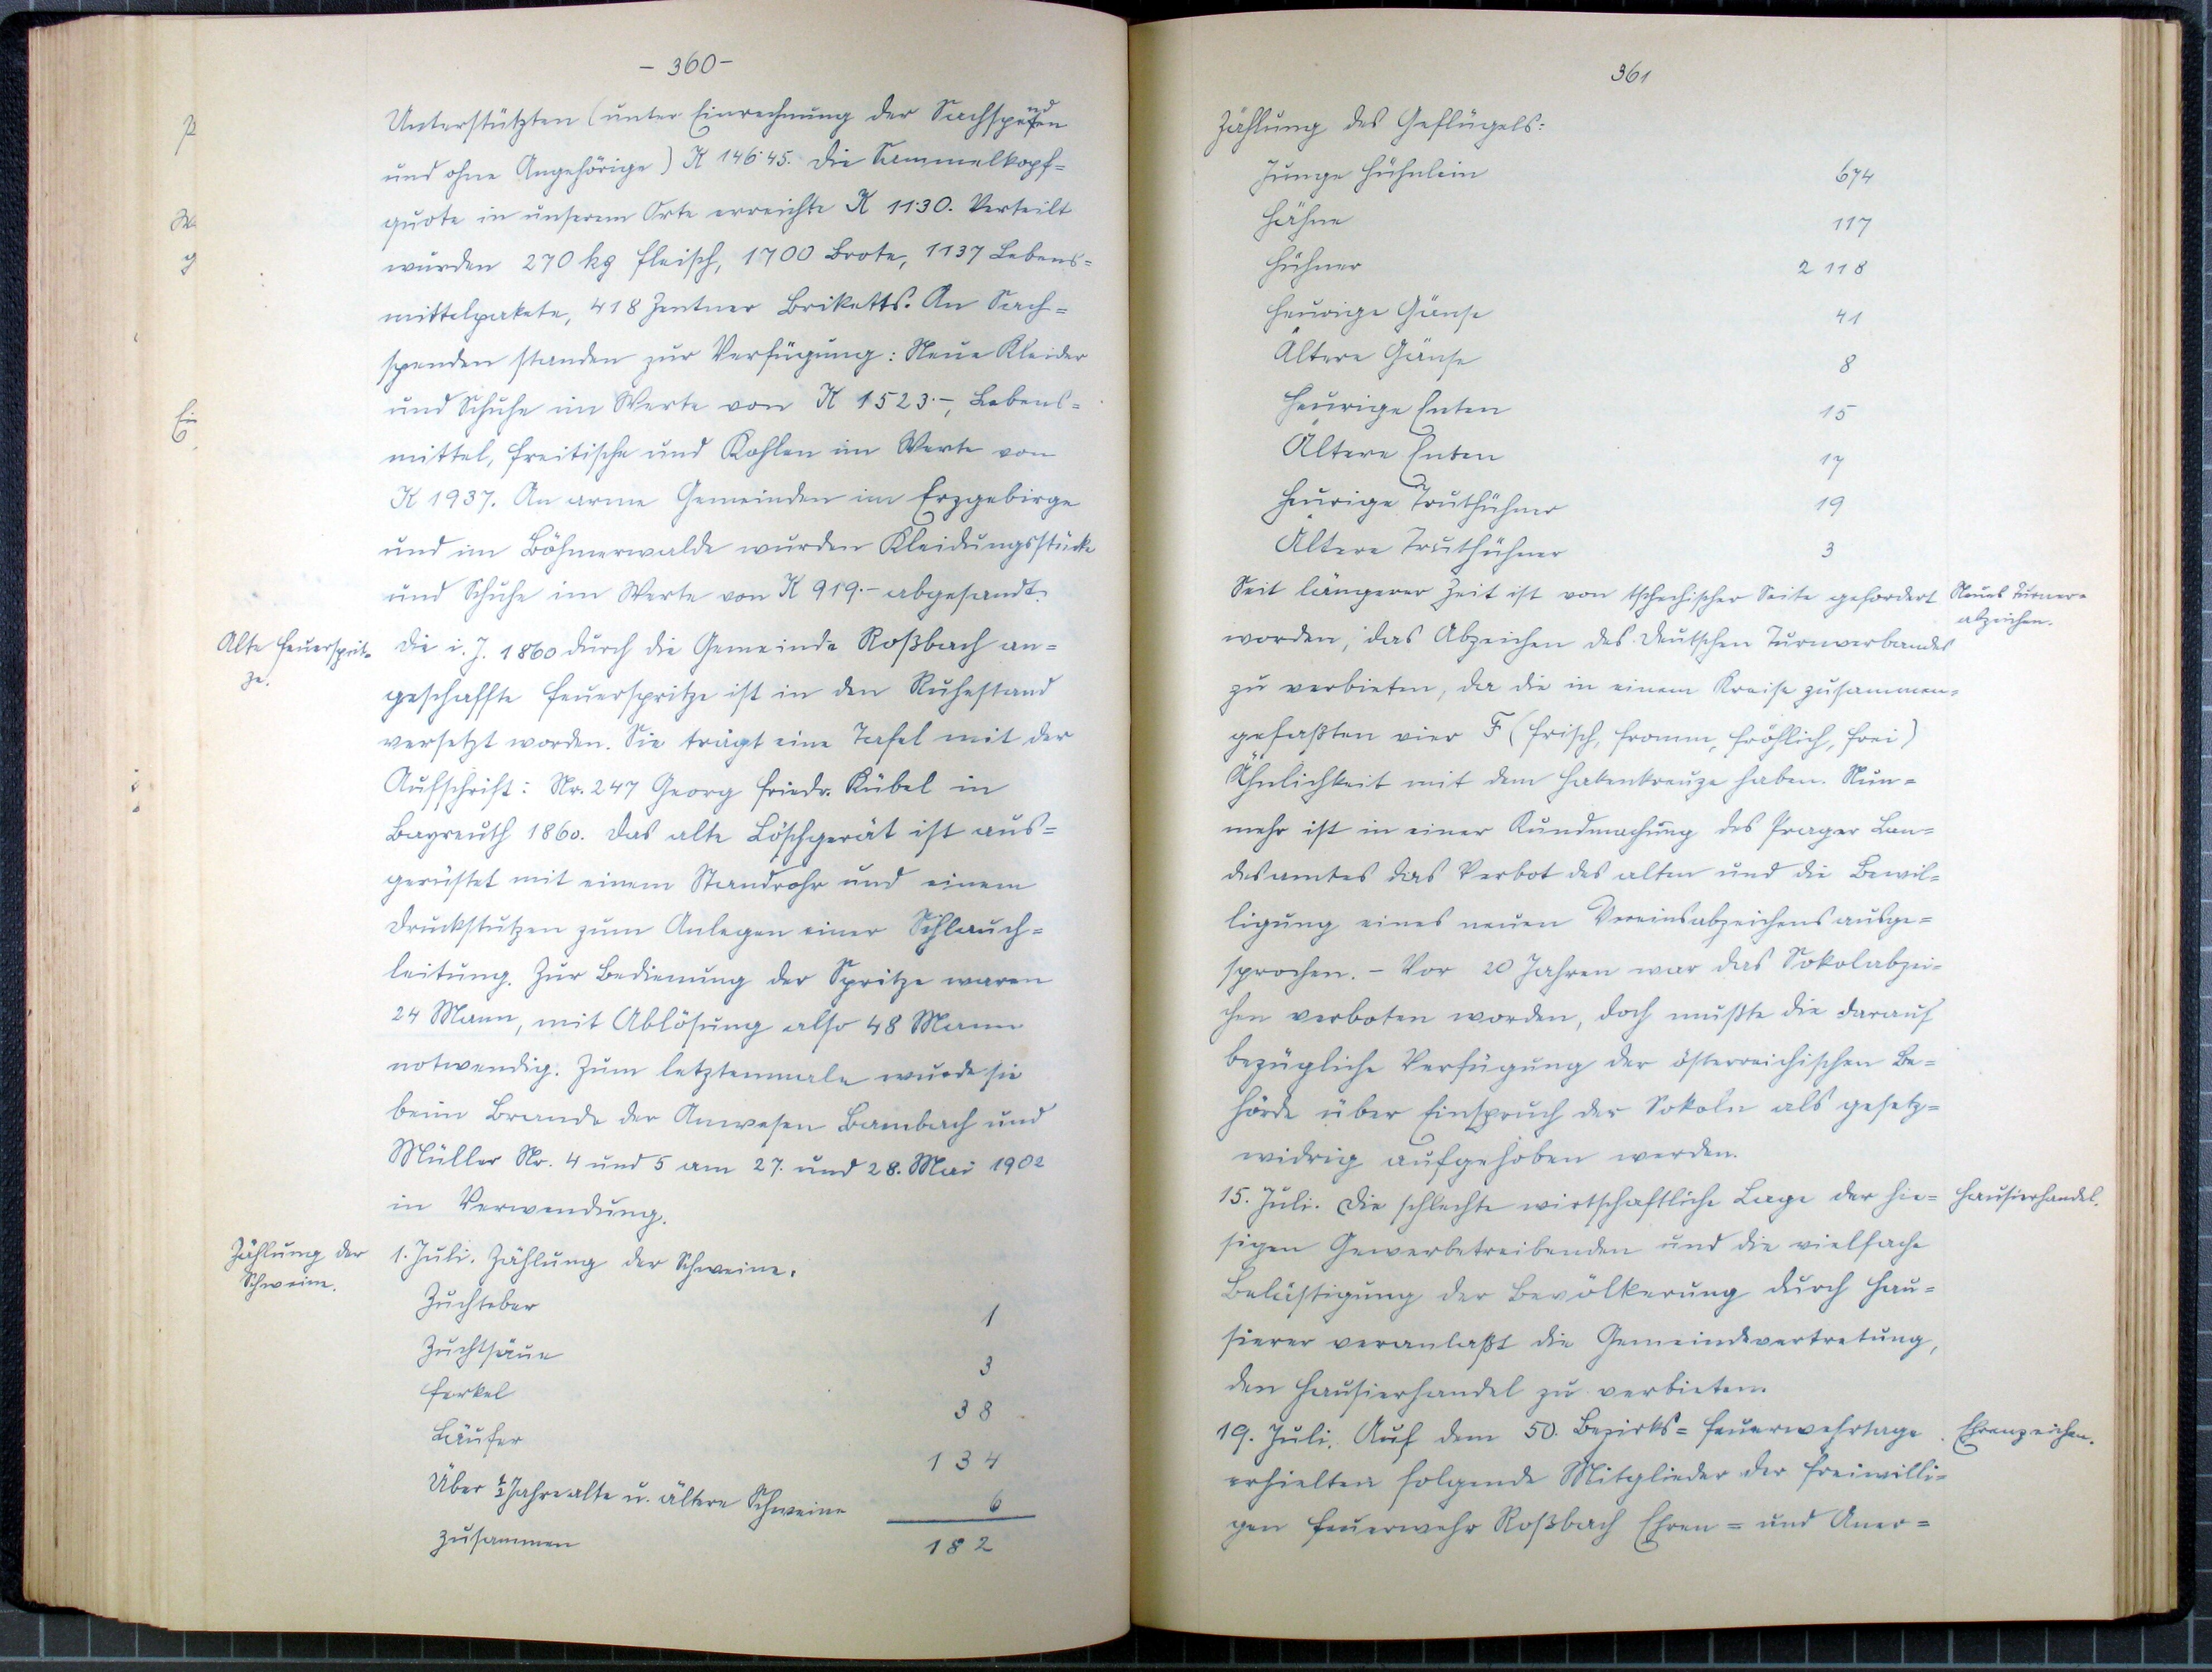 - 360 -
Unterstützten (unter Einrechnung der Sachspenden
und ohne Angehörige) K 146·45. Die Sammelkopf=
quote in unserem Orte erreichte K 11·30. Verteilt
wurden 270 kg Fleisch, 1700 Brote, 1137 Lebens=
mittelpakete, 418 Zentner Briketts. An Sach=
spenden standen zur Verfügung: Neue Kleider
und Schuhe im Werte von K 1523·-, Lebens=
mittel, Freitische und Kohlen im Werte von
K 1937. An arme Gemeinden im Erzgebirge
und im Böhmerwalde wurden Kleidungsstücke
und Schuhe im Werte von K 919.- abgesandt.
Alte Feuersprit=
ze.
Die i. J. 1860 durch die Gemeinde Roßbach an=
geschaffte Feuerspritze ist in den Ruhestand
versetzt worden. Sie trägt eine Tafel mit der
Aufschrift: Nr. 247 Georg Friedr. Kübel in
Bayreuth 1860. Das alte Löschgerät ist aus=
gerüstet mit einem Standrohr und einem
Druckstutzen zum Anlegen einer Schlauch=
leitung. Zur Bedienung der Spritze waren
24 Mann, mit Ablösung also 48 Mann
notwendig. Zum letztenmale wurde sie
beim Brande der Anwesen Bambach und
Müller Nr. 4 und 5 am 27. und 28. Mai 1902
in Verwendung.
Zählung der
Schweine.
1. Juli. Zählung der Schweine.
Zuchteber 1
Zuchtsäue 3
Ferkel 38
Läufer 134
Über ½ Jahre alte u. ältere Schweine 6
zusammen 182
361
Zählung des Geflügels:
Junge Hühnlein 674
Hähne 117
Hühner 2118
Heurige Gänse 41
Ältere Gänse 8
Heurige Enten 15
Ältere Enten 17
Heurige Truthühner 19
Ältere Truthühner 3
Seit längerer Zeit ist von tschechischer Seite gefordert
Neues Turner=
abzeichen.
worden, das Abzeichen des Deutschen Turnverbandes
zu verbieten, da die in einem Kreise zusammen=
gefaßten vier F (frisch, fromm, fröhlich, frei)
Ähnlichkeit mit dem Hakenkreuze haben. Nun=
mehr ist in einer Kundmachung des Prager Lan=
desamtes das Verbot des alten und die Bewil=
ligung eines neuen Vereinsabzeichens ausge=
sprochen. - Vor 20 Jahren war das Sokolabzei=
chen verboten worden, doch mußte die darauf
bezügliche Verfügung der österreichischen Be=
hörde über Einspruch der Sokoln als gesetz=
widrig aufgehoben werden.
15. Juli. Die schlechte wirtschaftliche Lage der hie=
Hausierhandel.
sigen Gewerbetreibenden und die vielfache
Belästigung der Bevölkerung durch Hau=
sierer veranlaßt die Gemeindevertretung,
den Hausierhandel zu verbieten.
19. Juli. Auf dem 50. Bezirks=Feuerwehrtage
Ehrenzeichen.
erhielten folgende Mitglieder der freiwilli=
gen Feuerwehr Roßbach Ehren= und Aner=